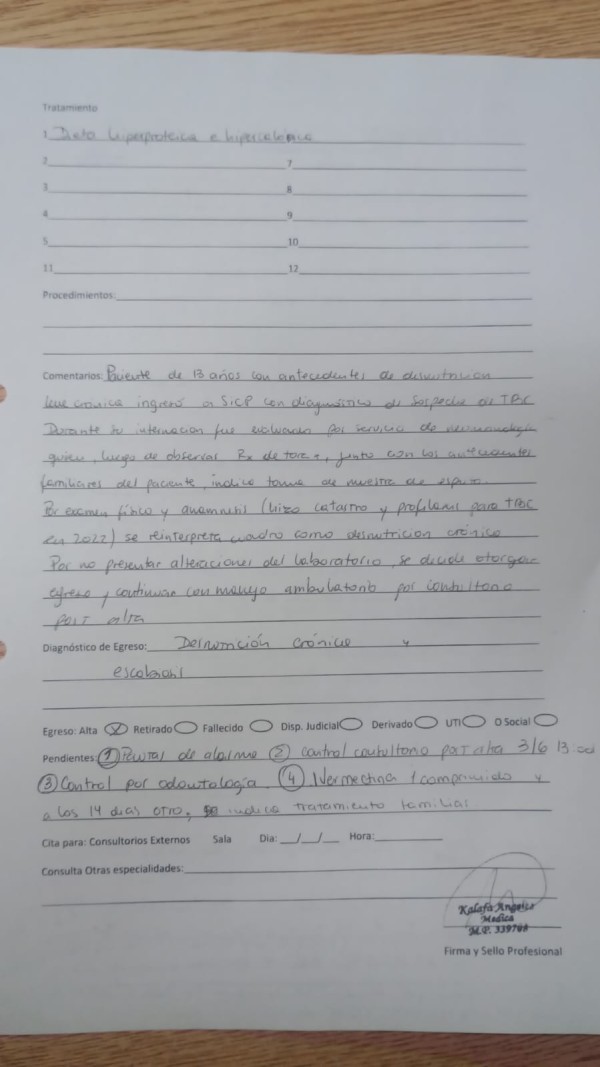 Tratamiento
1 Dieta hiperproteica e hipercalórica
2 7
3 8
4 9
5 10
11 12
Procedimientos:
Comentarios: Paciente de 13 años con antecedentes de desnutrición
leve crónica ingresó a SICP con diagnóstico de sospecha de TBC
Durante su internacion fue evaluado por servicio de neumonología
quien, luego de observar Rx de torax, junto con los antecedentes
familiares del paciente, indica toma de muestra de esputo.
Por examen físico y anamnesis (hizo catastro y profilaxis para TBC
en 2022) se reinterpreta cuadro como desnutricion crónica
Por no presentar alteraciones del laboratorio, se decide otorgar
egreso y continuar con manejo ambulatorio por consultorio
post alta
Diagnóstico de Egreso: Desnutrición crónica y
escabiosis
Egreso: Alta X Retirado Fallecido Disp. Judicial Derivado UTI O Social
Pendientes: 1 Pautas de alarma 2 control consultorio post alta 3/6 13:00
3 Control por odontología. 4 Ivermectina 1 comprimido y
a los 14 dias otro, se indica tratamiento familiar
Cita para: Consultorios Externos Sala Dia: __/__/__ Hora:
Consulta Otras especialidades:
Kalafa Angeles
Medica
M.P.
Firma y Sello Profesional